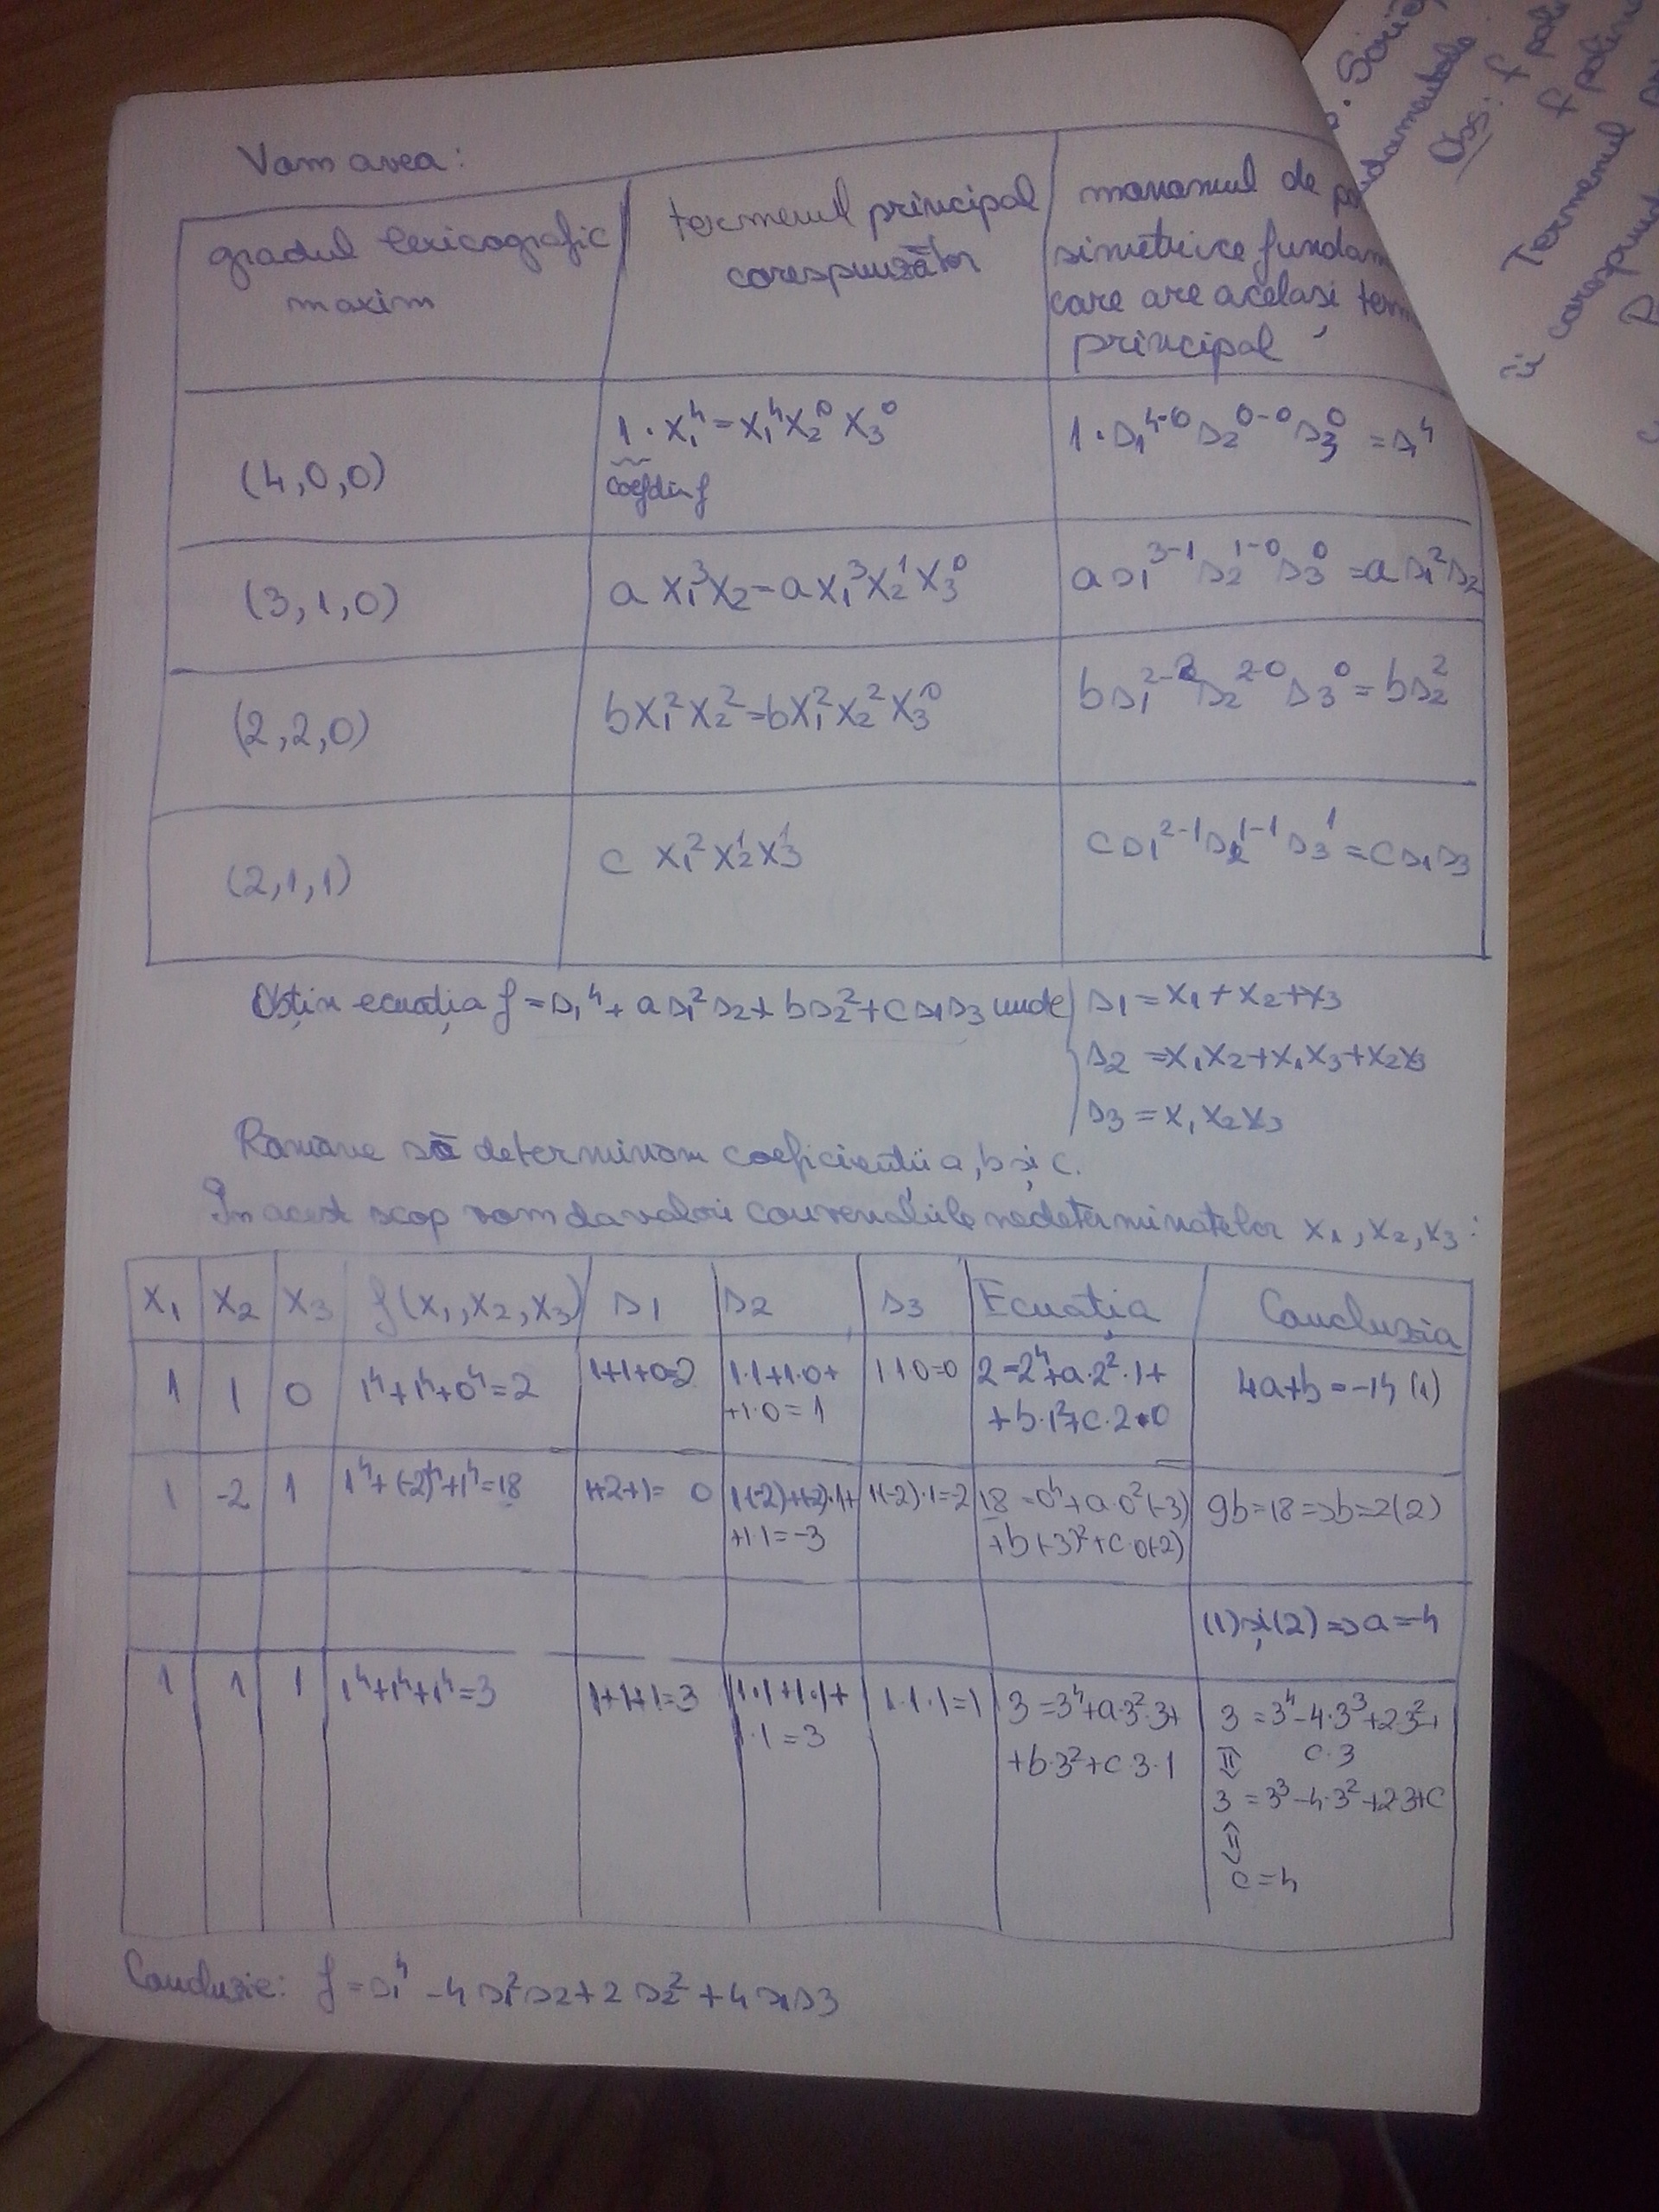 Vom avea:
gradul lexicografic maxim | termenul principal corespunzător | monomul de simetrice fundam care are același principal
(4,0,0) | 1·x₁⁴=x₁⁴x₂⁰x₃⁰ coef din f | 1·s₁⁴⁻⁰s₂⁰⁻⁰s₃⁰=s₁⁴
(3,1,0) | ax₁³x₂=ax₁³x₂¹x₃⁰ | as₁³⁻¹s₂¹⁻⁰s₃⁰=as₁²s₂
(2,2,0) | bx₁²x₂²=bx₁²x₂²x₃⁰ | bs₁²⁻²s₂²⁻⁰s₃⁰=bs₂²
(2,1,1) | c x₁²x₂¹x₃¹ | cs₁²⁻¹s₂¹⁻¹s₃¹=cs₁s₃
Obțin ecuația f=s₁⁴+as₁²s₂+bs₂²+cs₁s₃ unde s₁=x₁+x₂+x₃
s₂=x₁x₂+x₁x₃+x₂x₃
s₃=x₁x₂x₃
Rămâne să determinăm coeficienții a, b și c.
În acest scop vom da valori convenabile nedeterminatelor x₁, x₂, x₃:
x₁ | x₂ | x₃ | f(x₁,x₂,x₃) | s₁ | s₂ | s₃ | Ecuația | Concluzia
1 | 1 | 0 | 1⁴+1⁴+0⁴=2 | 1+1+0=2 | 1·1+1·0+ +1·0=1 | 1·1·0=0 | 2=2⁴+a·2²·1+ +b·1²+c·2·0 | 4a+b=-14 (1)
1 | -2 | 1 | 1⁴+(-2)⁴+1⁴=18 | 1+2+1= 0 | 1(-2)+(-2)·1+ +1·1=-3 | 1(-2)·1=-2 | 18=0⁴+a·0²(-3) +b(-3)²+c·0(-2) | 9b=18=>b=2(2)
(1) și (2)=>a=-4
1 | 1 | 1 | 1⁴+1⁴+1⁴=3 | 1+1+1=3 | 1·1+1·1+ 1·1=3 | 1·1·1=1 | 3=3⁴+a·3²·3+ +b·3²+c·3·1 | 3=3⁴-4·3³+2·3²+ c·3
⇕
3=3³-4·3²+2·3+c
⇕
c=4
Concluzie: f=s₁⁴-4s₁²s₂+2s₂²+4s₁s₃
Obs: f
f
Termenul